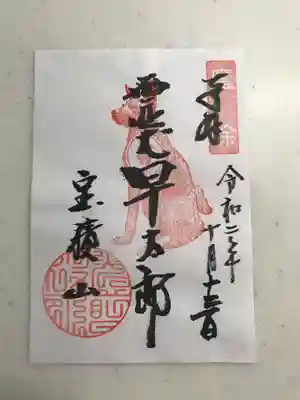 奉拝
令和二年
十月十三日
霊犬早太郎
宝積山